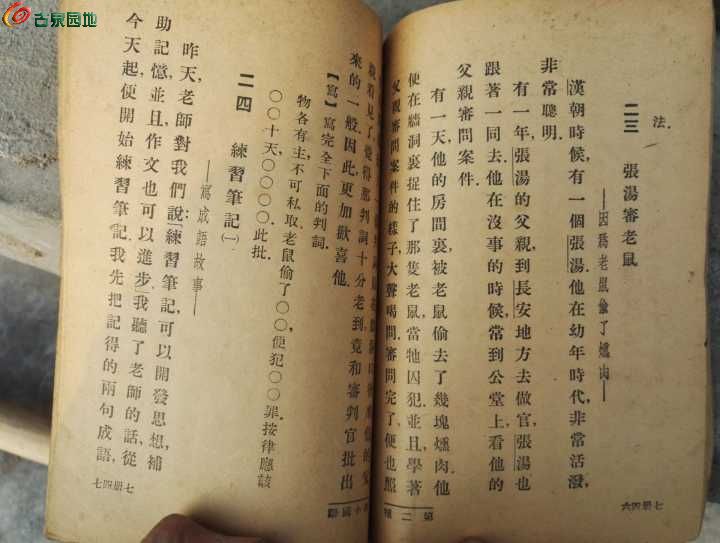 古泉园地
法.
二三　張湯審老鼠
——因爲老鼠偷了燻肉——
漢朝時候,有一個張湯.他在幼年時代,非常活潑,
非常聰明.
有一年,張湯的父親到長安地方去做官,張湯也
跟著一同去.他在沒事的時候,常到公堂上看他的
父親審問案件.
有一天,他的房間裏,被老鼠偷去了幾塊燻肉.他
便在牆洞裏捉住了那隻老鼠,當牠囚犯,並且學著
父親審問案件的樣子,大聲喝問.審問完了,便也照
七册四六
第二種
親看見了,覺得那判詞十分老到,竟和審判官批出
來的一般.因此,更加歡喜他.
【寫】寫完全下面的判詞.
物各有主,不可私取.老鼠偷了〇〇,便犯〇〇罪,按律應該
〇〇十天,〇〇〇〇.此批.
二四　練習筆記(一)
——寫成語故事——
昨天,老師對我們說:「練習筆記,可以開發思想,補
助記憶,並且,作文也可以進步.」我聽了老師的話,從
今天起,便開始練習筆記.我先把記得的兩句成語,
七册四七